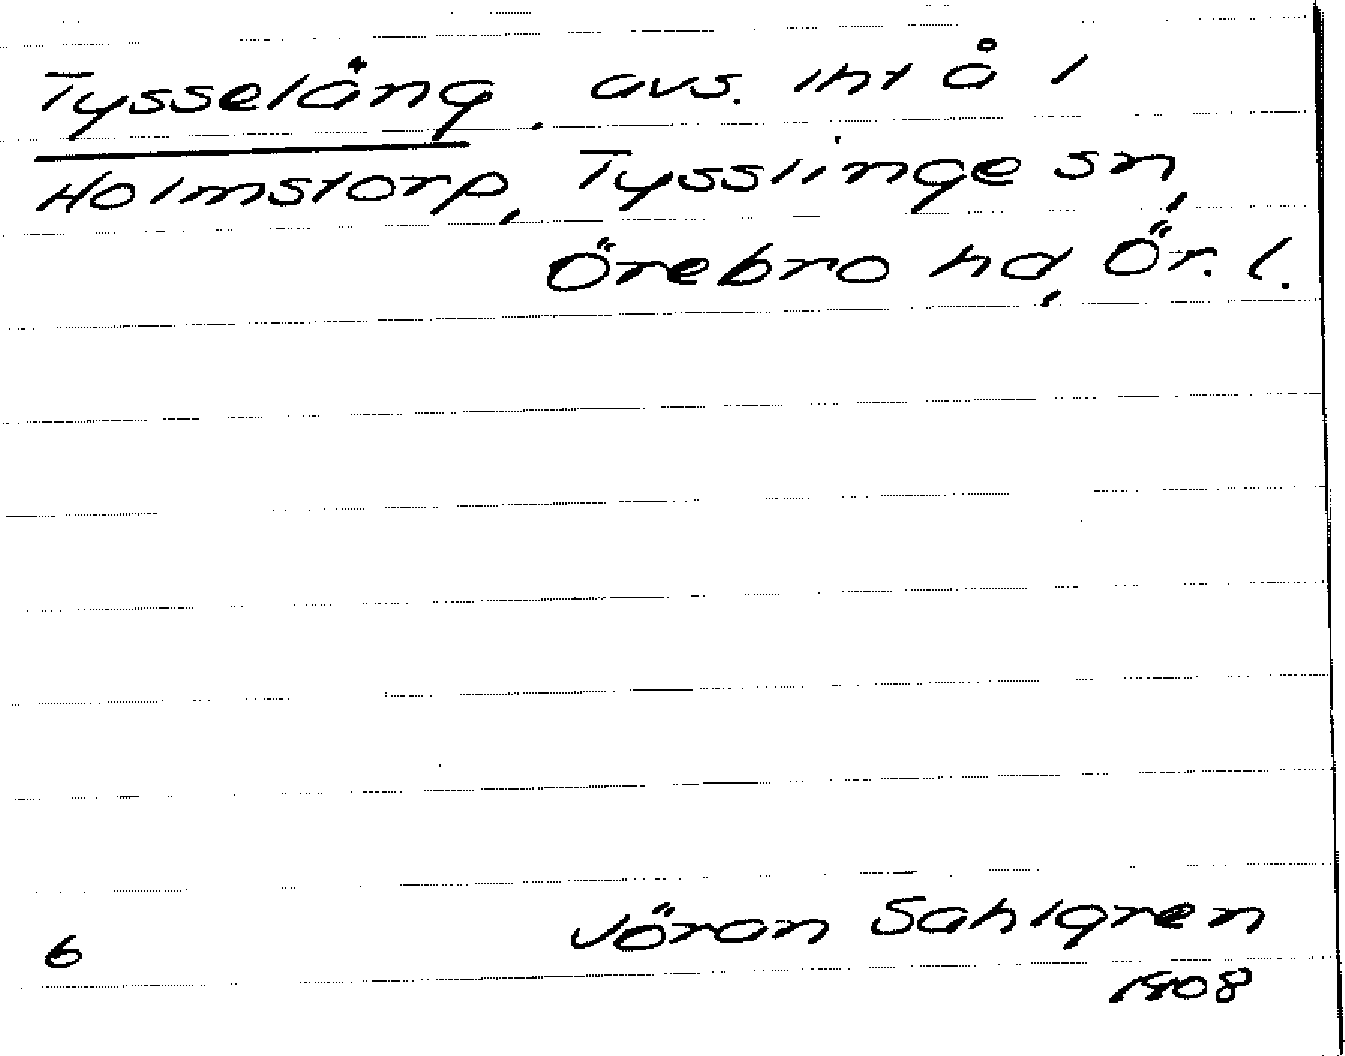 Tysselång, avs. int å i
Holmstorp, Tysslinge sn,
Örebro hd, Ör. l.
6
Jöran Sahlgren
1908